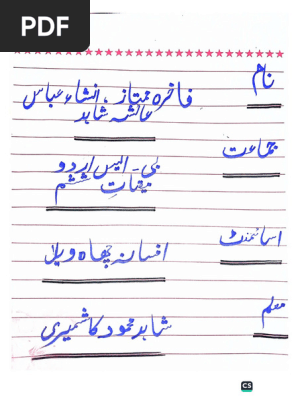 PDF
نام
فاخرہ ممتاز، انشاء عباس
عائشہ شاہد
جماعت
بی۔ ایس اردو
میقاتِ ششم
اسائمنٹ
افسانہ چھاہ ویلا
معلم
شاہد محمود کاشمیری
CS